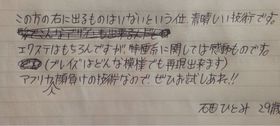 この方の右に出るものはいないという位、素晴しい技術です。
エクステはもちろんですが、特殊系に関しては感動もので
(ブレイズはどんな模様でも再現出来ます)
アフリカ人顔負けの技術なので、ぜひお試しあれ!!
石田ひとみ 29歳